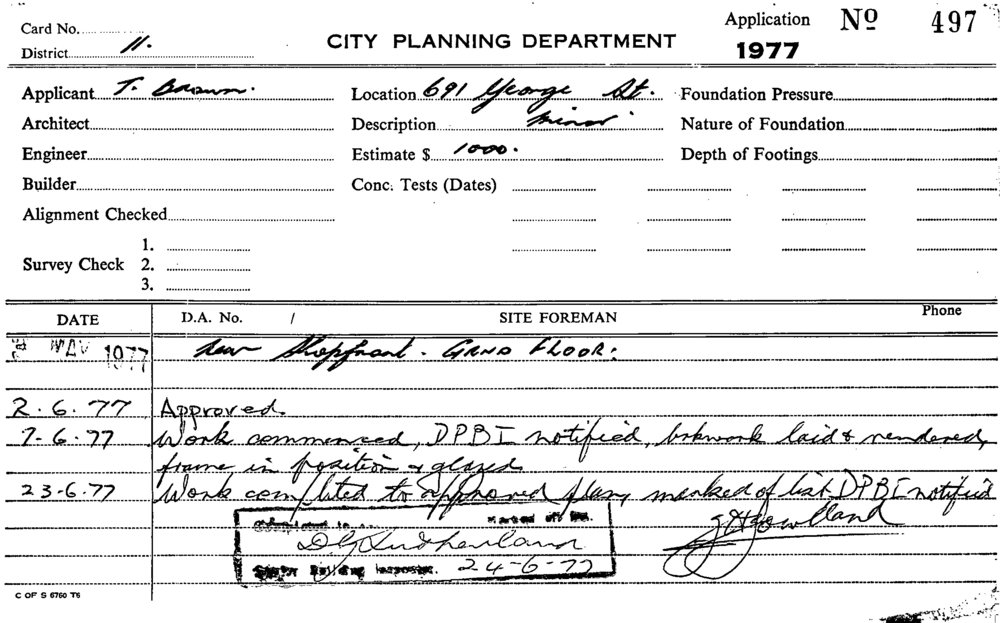 Card No.
Application Nº 497
District 11.
CITY PLANNING DEPARTMENT
1977
Applicant T. Brown. Location 691 George St. Foundation Pressure
Architect Description Minor Nature of Foundation
Engineer Estimate $ 1000. Depth of Footings
Builder Conc. Tests (Dates)
Alignment Checked
Survey Check 1. 2. 3.
DATE D.A. No. / SITE FOREMAN Phone
MAY 1977 New Shopfront. GRND FLOOR.
2.6.77 Approved.
7-6.77 Work commenced, DPBI notified, brkwork laid & rendered,
frame in position & glazed
23-6.77 Work completed to approved plan, marked of list DPBI notified
Marked off
D G Sutherland
Building Inspector. 24-6-77
C OF S 6760 T6